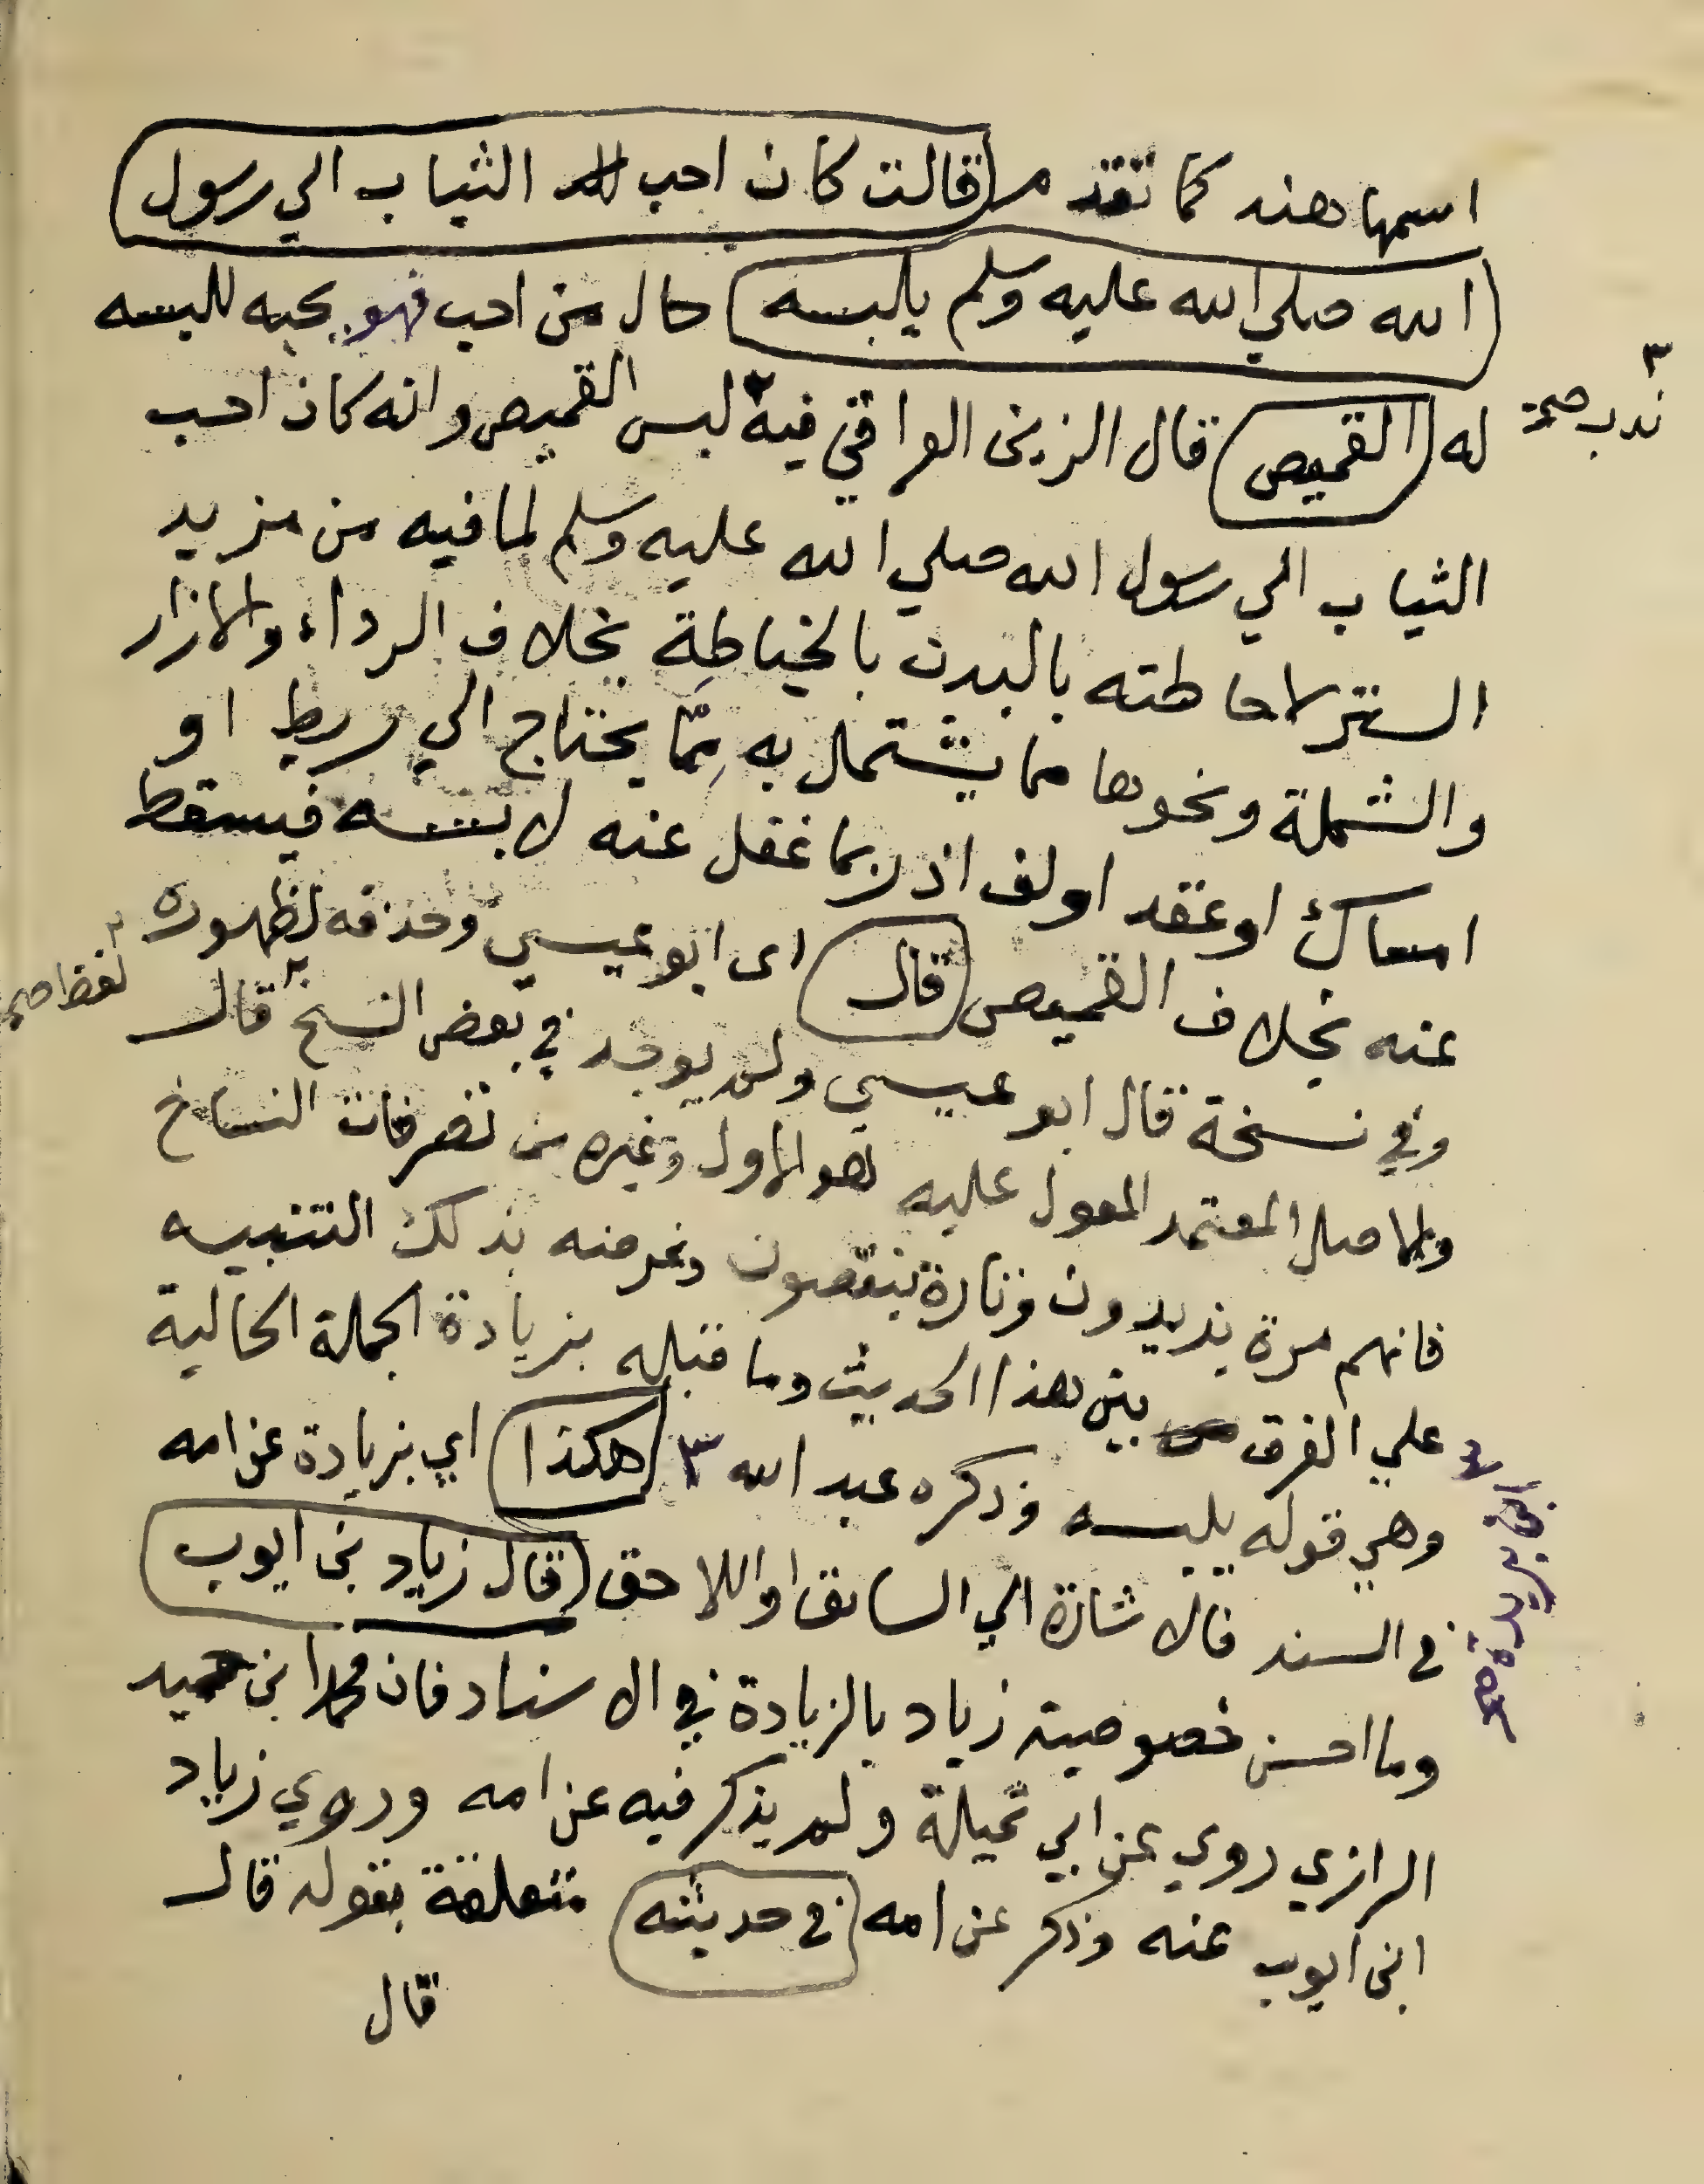 اسمها هند كما تقدم (قالت كان احب الثياب الي رسول
الله صلي الله عليه وسلم يلبسه) حال من احب فهو يحبه للبسه
له (القميص) قال الزين العراقي فيه ٣ لبس القميص وانه كان احب
٣ ندب صح
الثياب الي رسول الله صلي الله عليه وسلم لما فيه من مزيد
الستر لاحاطته بالبدن بالخياطة بخلاف الرداء والازار
والشملة ونحوها مما يشتمل به مما يحتاج الي ربط او
امساك او عقد او لف اذ ربما غفل عنه لابسه فيسقط
عنه بخلاف القميص (قال) اى ابو عيسي وحذفه لظهوره
وفي نسخة قال ابو عيسي ولم يوجد في بعض النسخ ٢ قال
٢ لفظ صح
والاصل المعتمد المعول عليه هو الاول وغيره من تصرفات النساخ
فانهم مرة يزيدون وتارة ينقصون وغرضه بذلك التنبيه
علي الفرق بين هذا الحديث وما قبله بزيادة الجملة الحالية
وهي قوله يلبسه وذكره عبد الله ٣ (هكذا) اي بزيادة عن امه
٣ ابن بريدة صح
في السند فالاشارة الي السابق او اللاحق (قال زياد بن ايوب)
وما احسن خصوصية زياد بالزيادة في الاسناد فان محمد ابن حميد
الرازي روي عن ابي تميلة ولم يذكر فيه عن امه وروي زياد
ابن ايوب عنه وذكر عن امه (في حديثه) متعلقة بقوله قال
قال